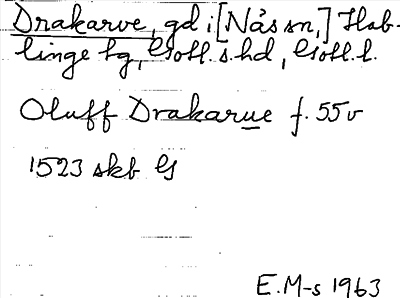 Drakarve, gd i [Näs sn,] Hab-
linge tg, Gotl. s. hd, Gotl. l.
Oluff Drakarue f. 55v
1523 skb G
E.M-s 1963